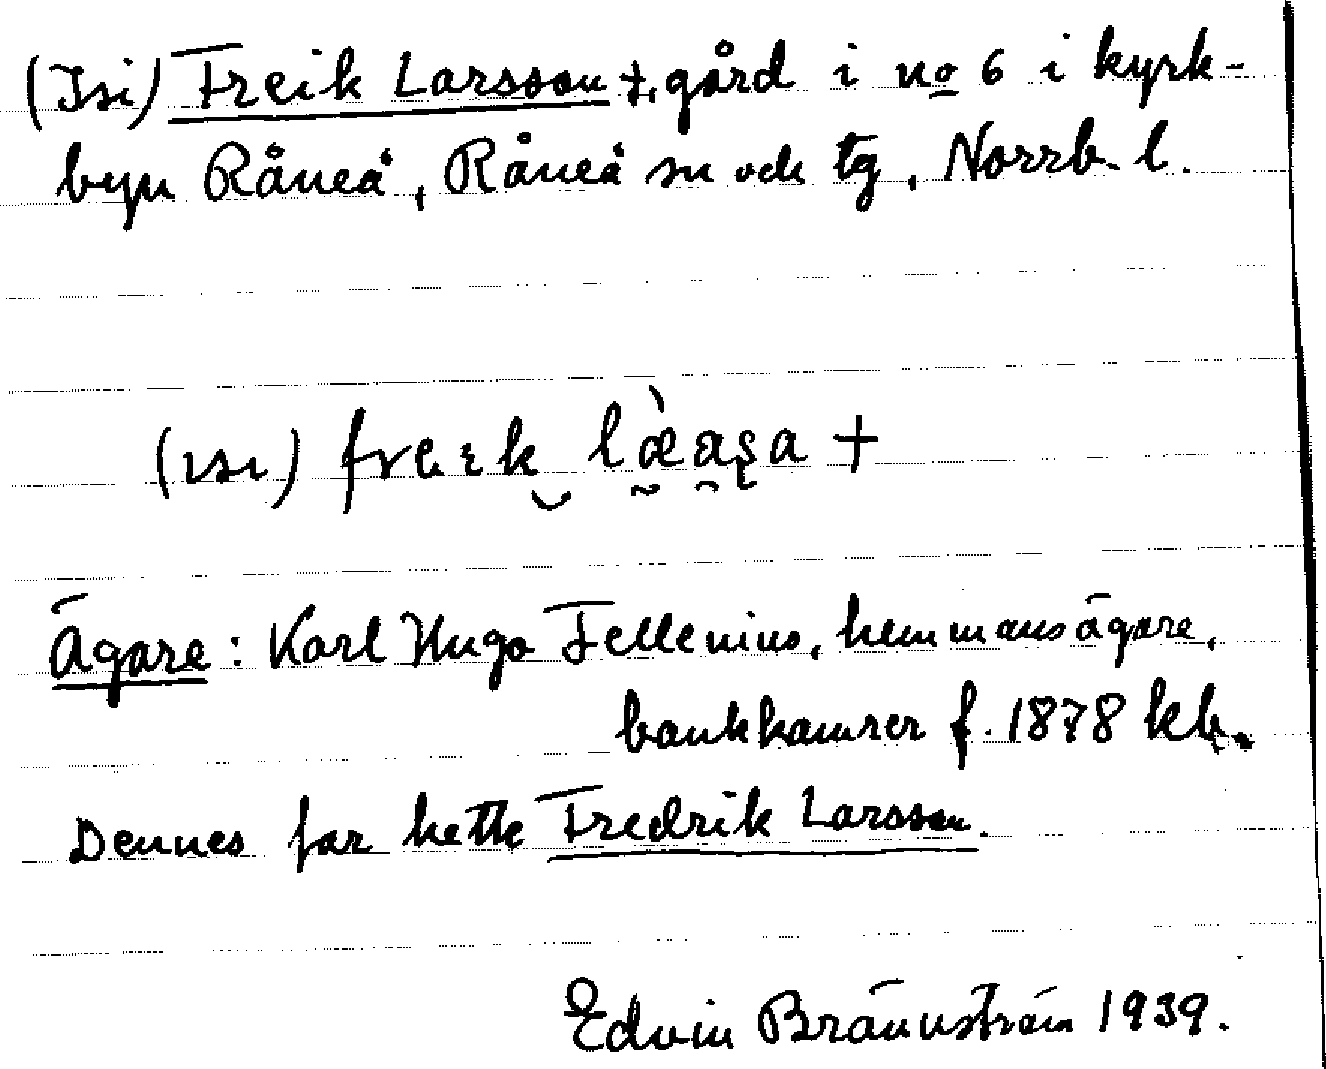 (Isi) Freik Larsson +, gård i no 6 i kyrk-
byn Råneå, Råneå sn och tg, Norrb. l.
(ɪsɪ) freɪk læ̀aʂa +
Ägare: Karl Hugo Fellenius, hemmansägare,
bankkamrer f. 1878 kb.
Dennes far hette Fredrik Larsson.
Edvin Brännström 1939.